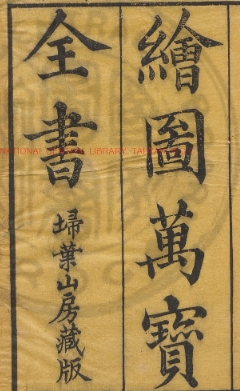 繪圖萬寶
全書
埽葉山房藏版
NATIONAL LIBRARY, TA